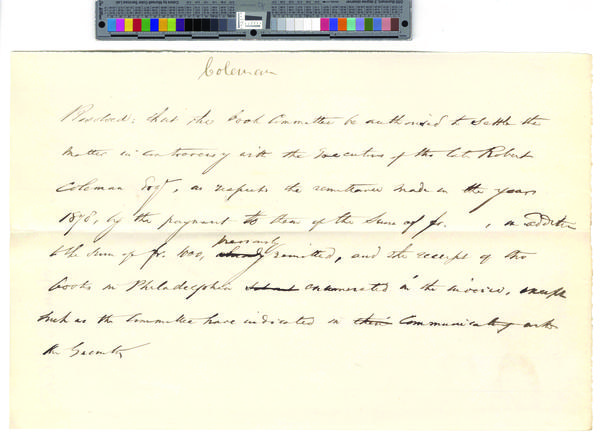 Coleman
Resolved; that the Book Committee be authorised to settle the
matter in controversy with the Executors of the late Robert
Coleman Esqr, as respects the remittance made in the year
by the payment to them of the sum of fr. , in addition
to the sum of fr. previously already remitted, and the receipt of the
books in Philadelphia enumerated in the invoice, except
such as the Committee have indicated in their communication with
the Executors